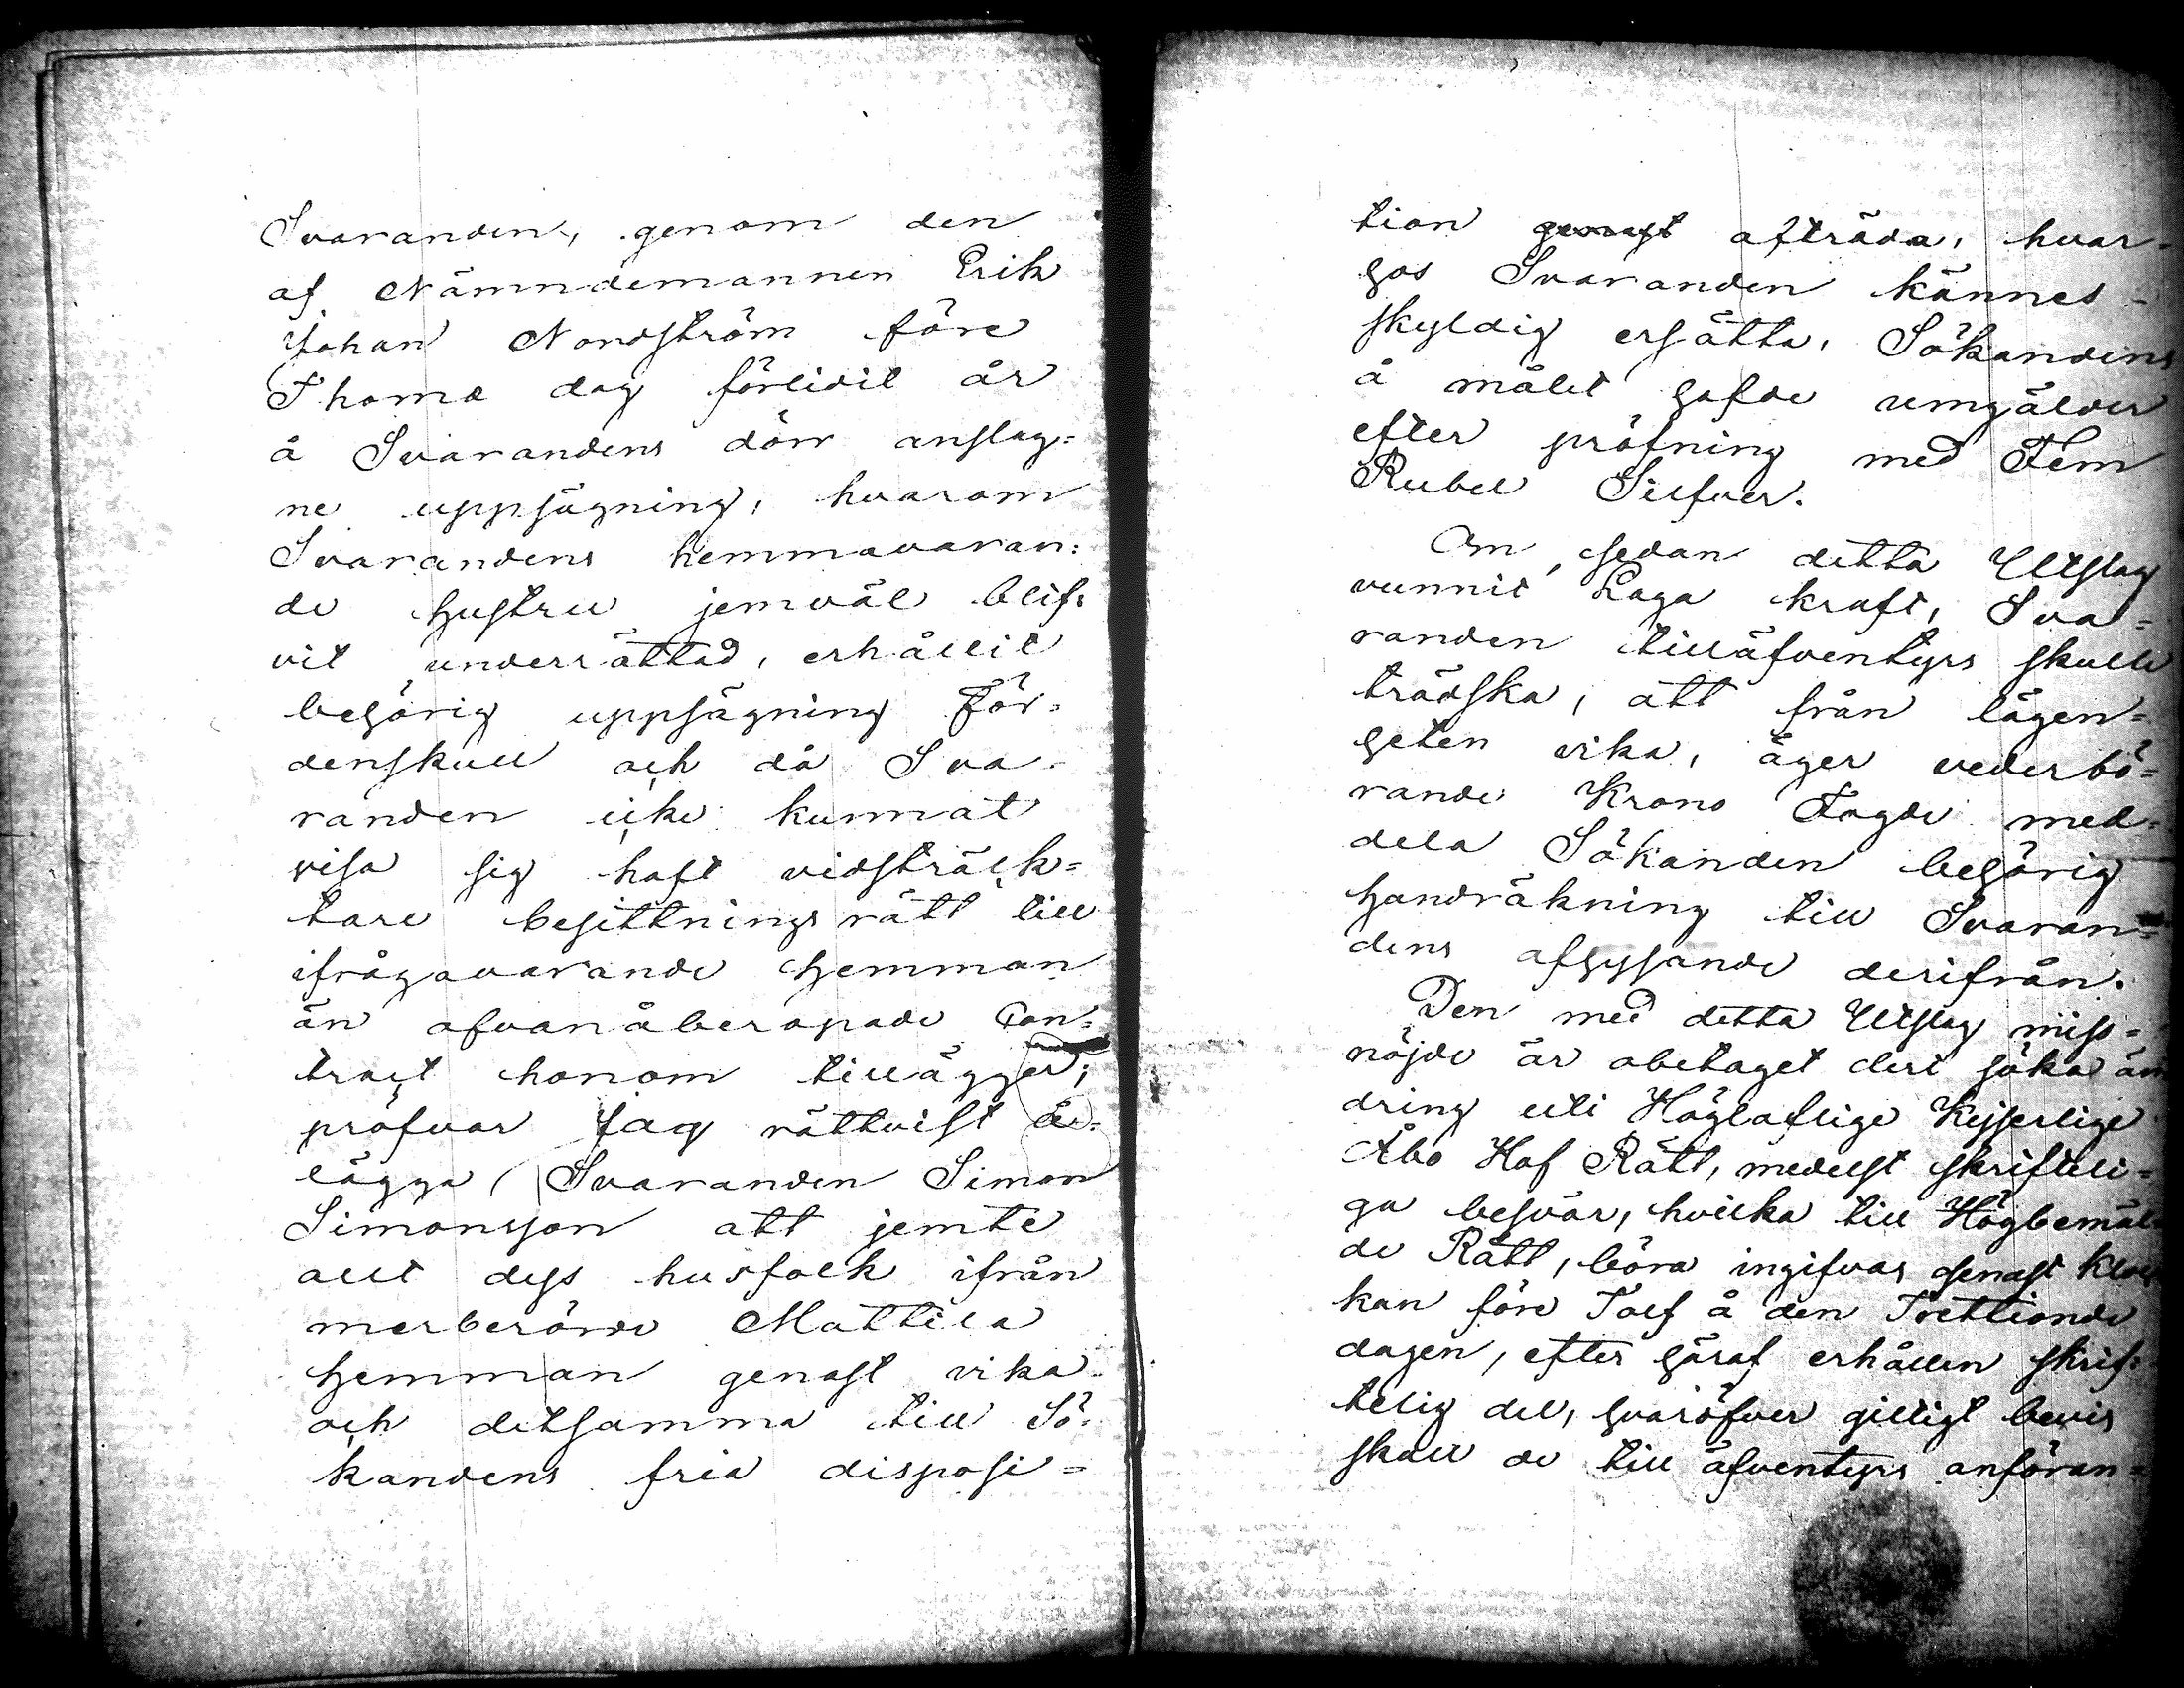 Svaranden, genom den
af Nämndemannen Erik
Johan Nordström före
Thomæ dag förlidit år
å Svarandens dörr anslag=
ne uppsägning, hvarom
Svarandens hemmavaran=
de hustru jemväl blif=
vit underrättad, erhållit
behörig uppsägning För=
denskull och då Sva=
randen icke kunnat
visa sig haft vidsträck=
tare besittnings rätt till
ifrågavarande hemman
än ofvanåberopade Con=
tract honom tillägger;
pröfvar Jag rättvist å=
lägga Svaranden Simon
Simonsson att jemte
allt dess husfolk ifrån
merberörde Mattila
hemman genast vika
och detsamma till Sö=
kandens fria disposi=
tion genast afträda, hvar=
hos Svaranden kännes
skyldig ersätta, Sökandens
å målet hafde umgälder
efter pröfning med Fem
Rubel Silfver.
Om, sedan detta Utslag
vunnit Laga kraft, Sva=
randen tilläfventyrs skulle
trädska, att från lägen=
heten vika, äger vederbö=
rande Krono Fogde med=
dela Sökanden behörig
handräkning till Svaran=
dens afhysande derifrån.
Den med detta Utslag miss=
nöjde är obetaget deri söka än
dring uti Högloflige Kejserlige
Åbo Hof Rätt, medelst skriftli=
ga besvär, hvilka till Högbemäl=
de Rätt, böra ingifvas senast kloc
kan före Tolf å den Trettionde
dagen, efter häraf erhållen skrif=
telig del, hvaröfver gilligt bevis
skall de till äfventyrs anföran=